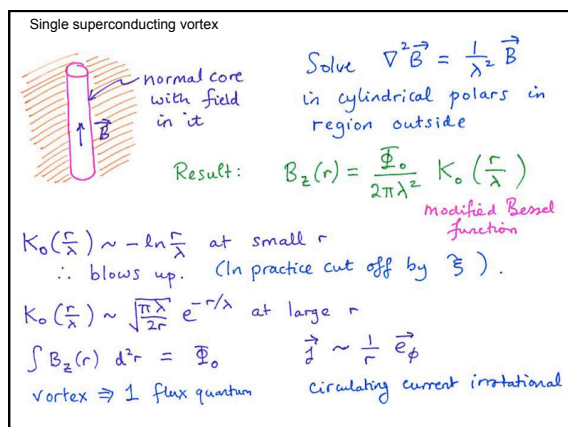 Single superconducting vortex
normal core
with field
in it
B⃗
Solve ∇²B⃗ = 1/λ² B⃗
in cylindrical polars in
region outside
Result: B_z(r) = Φ₀/2πλ² K₀(r/λ)
modified Bessel
function
K₀(r/λ) ~ -ln r/λ at small r
∴ blows up. (In practice cut off by ξ).
K₀(r/λ) ~ √(πλ/2r) e^(-r/λ) at large r
∫ B_z(r) d²r = Φ₀
vortex ⇒ 1 flux quantum
j⃗ ~ 1/r e⃗_ϕ
circulating current irrotational